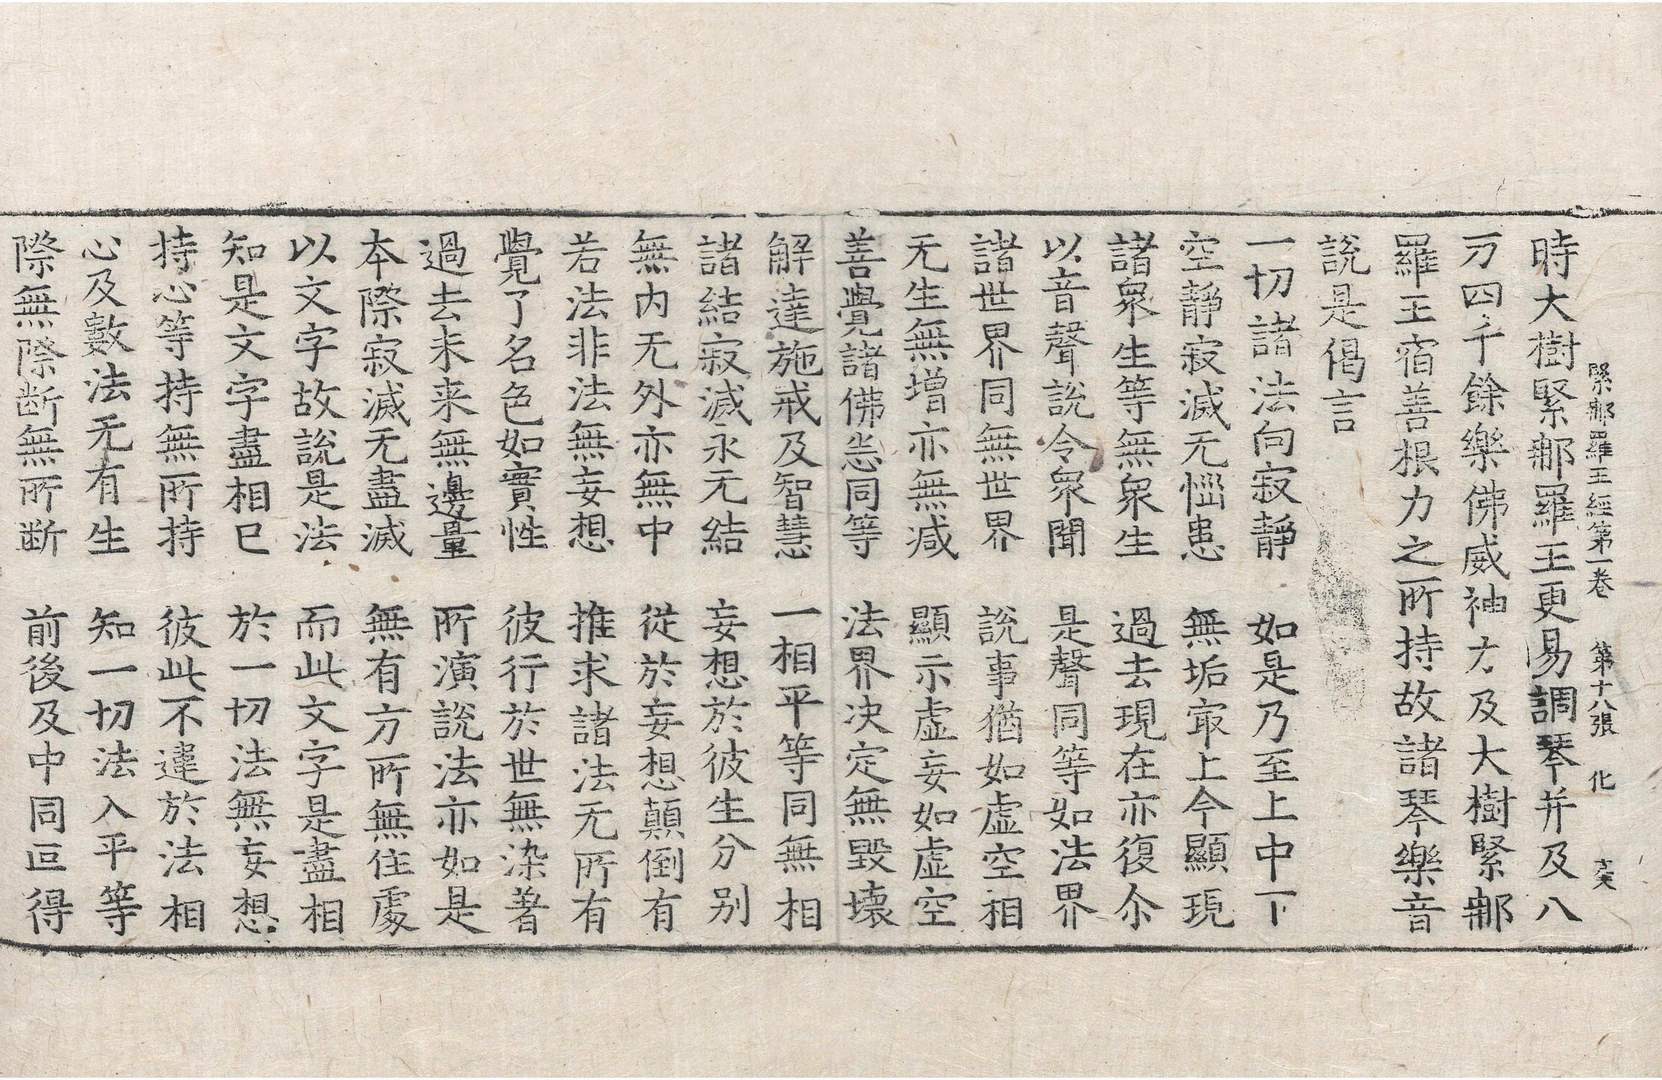 緊那羅王經第一卷 第十八張 化
時大樹緊那羅王更易調琴并及八
万四千餘樂佛威神力及大樹緊那
羅王宿善根力之所持故諸琴樂音
說是偈言
一切諸法向寂靜 如是乃至上中下
空靜寂滅无惱患 無垢㝡上今顯現
諸衆生等無衆生 過去現在亦復尒
以音聲說令衆聞 是聲同等如法界
諸世界同無世界 說事猶如虛空相
无生無增亦無減 顯示虛妄如虛空
善覺諸佛悉同等 法界决定無毀壞
解達施戒及智慧 一相平等同無相
諸結寂滅永无結 妄想於彼生分別
無內无外亦無中 從於妄想顛倒有
若法非法無妄想 推求諸法无所有
覺了名色如實性 彼行於世無染著
過去未来無邊量 所演說法亦如是
本際寂滅无盡滅 無有方所無住處
以文字故說是法 而此文字是盡相
知是文字盡相已 於一切法無妄想
持心等持無所持 彼此不違於法相
心及數法无有生 知一切法入平等
際無際断無所断 前後及中同叵得